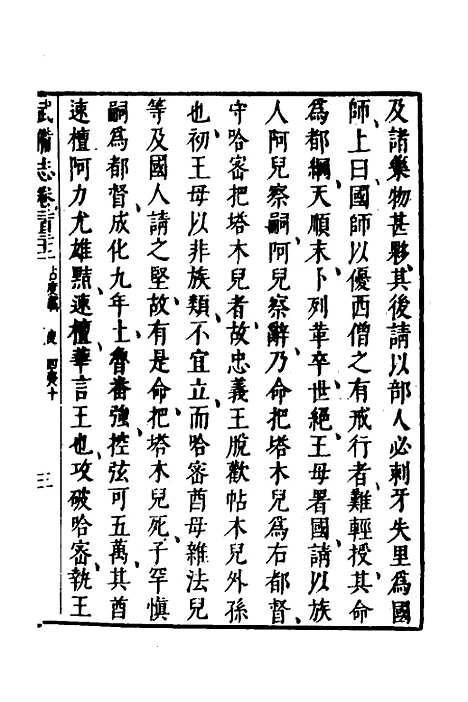 及諸藥物甚夥其後請以部人必剌牙失里為國
師上曰國師以優西僧之有戒行者難輕授其命
為都綱天順末卜列革卒世絕王母署國請以族
人阿兒察嗣阿兒察辭乃命把塔木兒為右都督
守哈密把塔木兒者故忠義王脫歡帖木兒外孫
也初王母以非族類不宜立而哈密酋母雜法兒
等及國人請之堅故有是命把塔木兒死子罕慎
嗣為都督成化九年土魯番強控弦可五萬其酋
速檀阿力尤雄黠速檀華言王也攻破哈密執王
武備志卷 占度載 度 四夷十 三